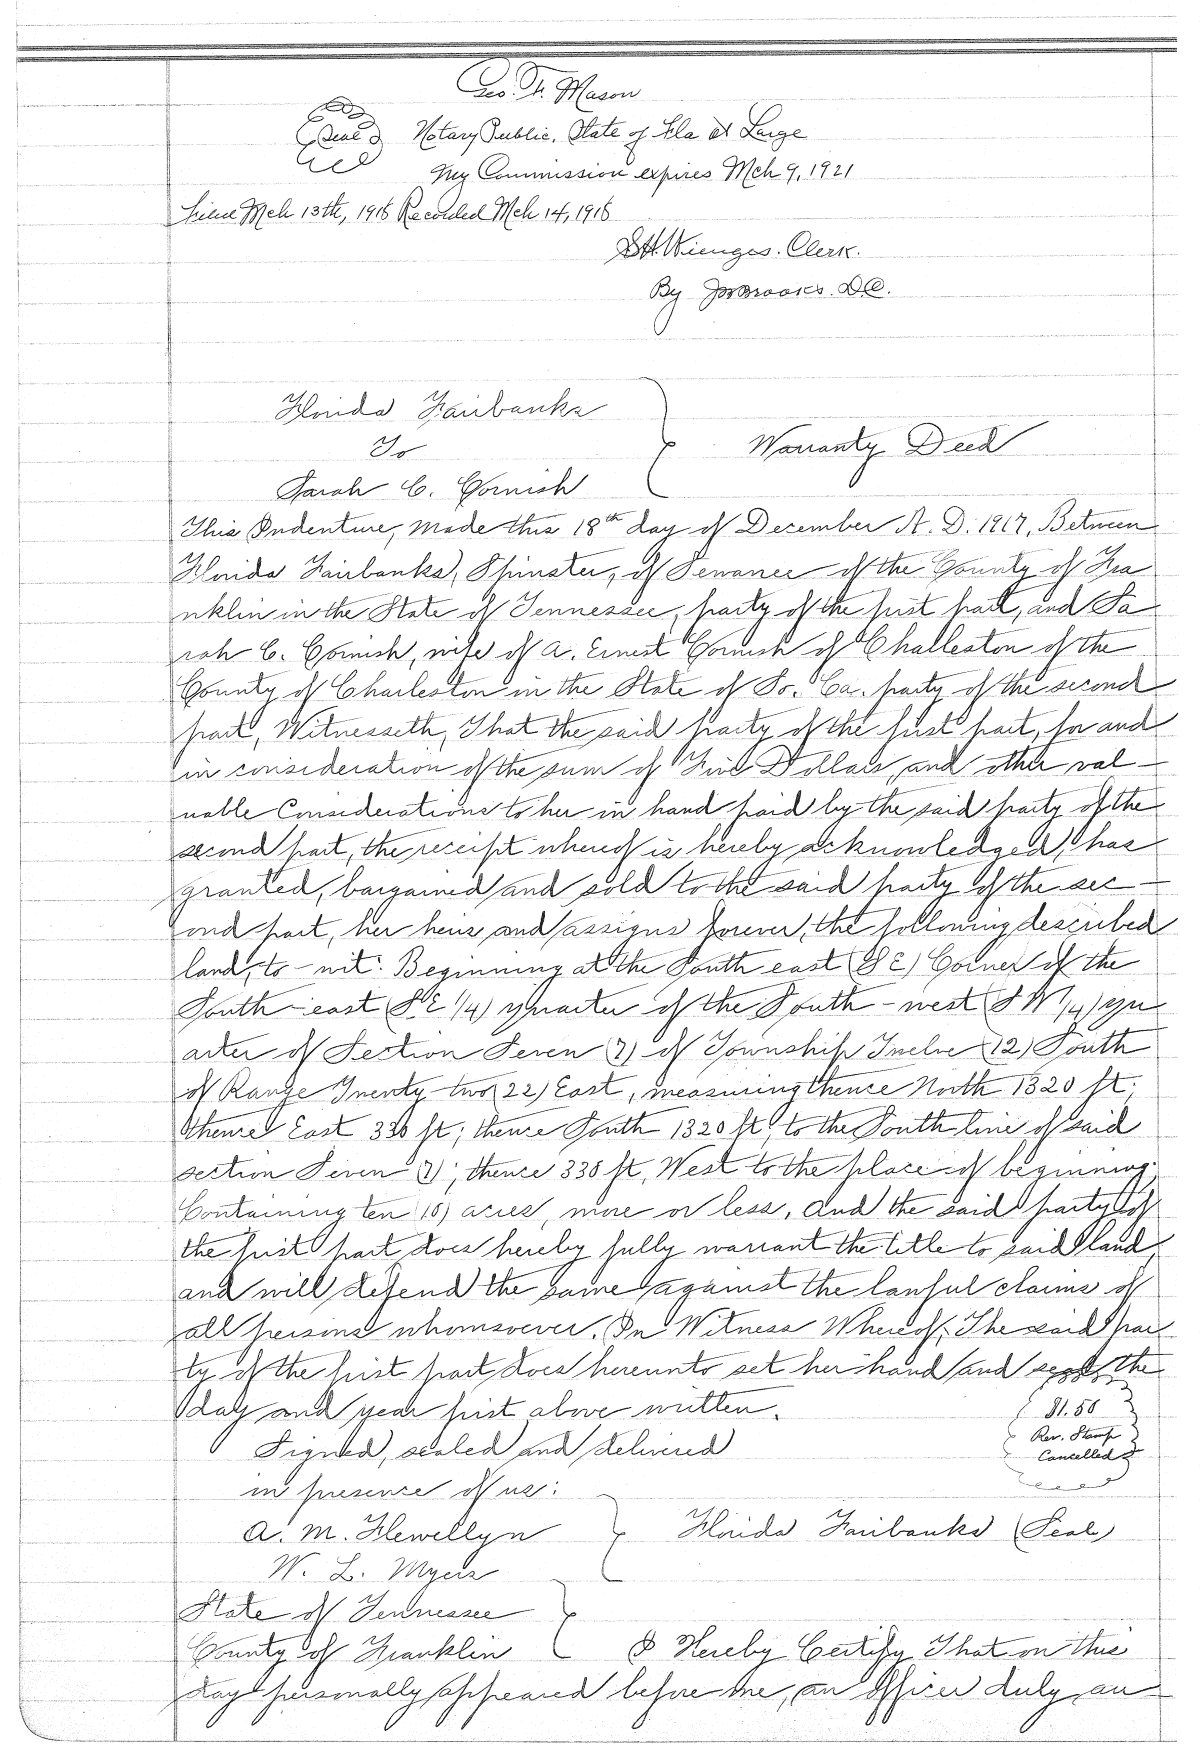 Geo. H. Mason
Seal
Notary Public, State of Fla at Large
My Commission expires Mch 9, 1921
Filed Mch 13th, 1918 Recorded Mch 14, 1918
S.H. Wienges. Clerk.
By Brooks. D.C.
Florida Fairbanks
To
Warranty Deed
Sarah C. Cornish
This Indenture, Made this 18th day of December A. D. 1917, Between
Florida Fairbanks, Spinster, of Sewanee of the County of Fra
nklin in the State of Tennessee, party of the first part, and Sa
rah C. Cornish, wife of A. Ernest Cornish of Challeston of the
County of Charleston in the State of So. Ca. party of the second
part, Witnesseth, That the said party of the first part, for and
in consideration of the sum of Five Dollars, and other val-
uable Considerations to her in hand paid by the said party of the
second part, the receipt whereof is hereby acknowledged, has
granted, bargained and sold to the said party of the sec-
ond part, her heirs and assigns forever, the following described
land, to-wit: Beginning at the South east (S E) Corner of the
South-east (S E 1/4) quarter of the South-west (S W 1/4) qu
arter of Section Seven (7) of Township Twelve (12) South
of Range Twenty-two (22) East, measuring thence North 1320 ft;
thence East 330 ft; thence South 1320 ft, to the South line of said
section Seven (7); thence 330 ft, West to the place of beginning,
Containing ten (10) acres, more or less, And the said party of
the first part does hereby fully warrant the title to said land,
and will defend the same against the lawful claims of
all persons whomsoever. In Witness Whereof, The said par
ty of the first part does hereunto set her hand and seal the
day and year first above written.
$1.50
Rev. Stamp
Cancelled
Signed, sealed and delivered
in presence of us:
A. M. Flewellyn
Florida Fairbanks (Seal)
W. L. Myers
State of Tennessee
County of Franklin
I Hereby Certify That on this
day personally appeared before me, an officer duly au-